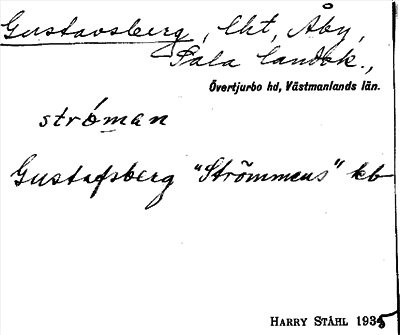 Gustavsberg, lht, Åby,
Sala landsk.,
Övertjurbo hd, Västmanlands län.
strö́man
Gustafsberg "Strömmens" kb
HARRY STÅHL 1935